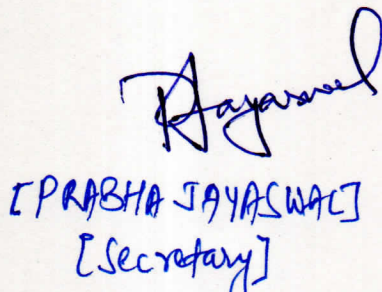 PJayaswal
[PRABHA JAYASWAL]
[Secretary]